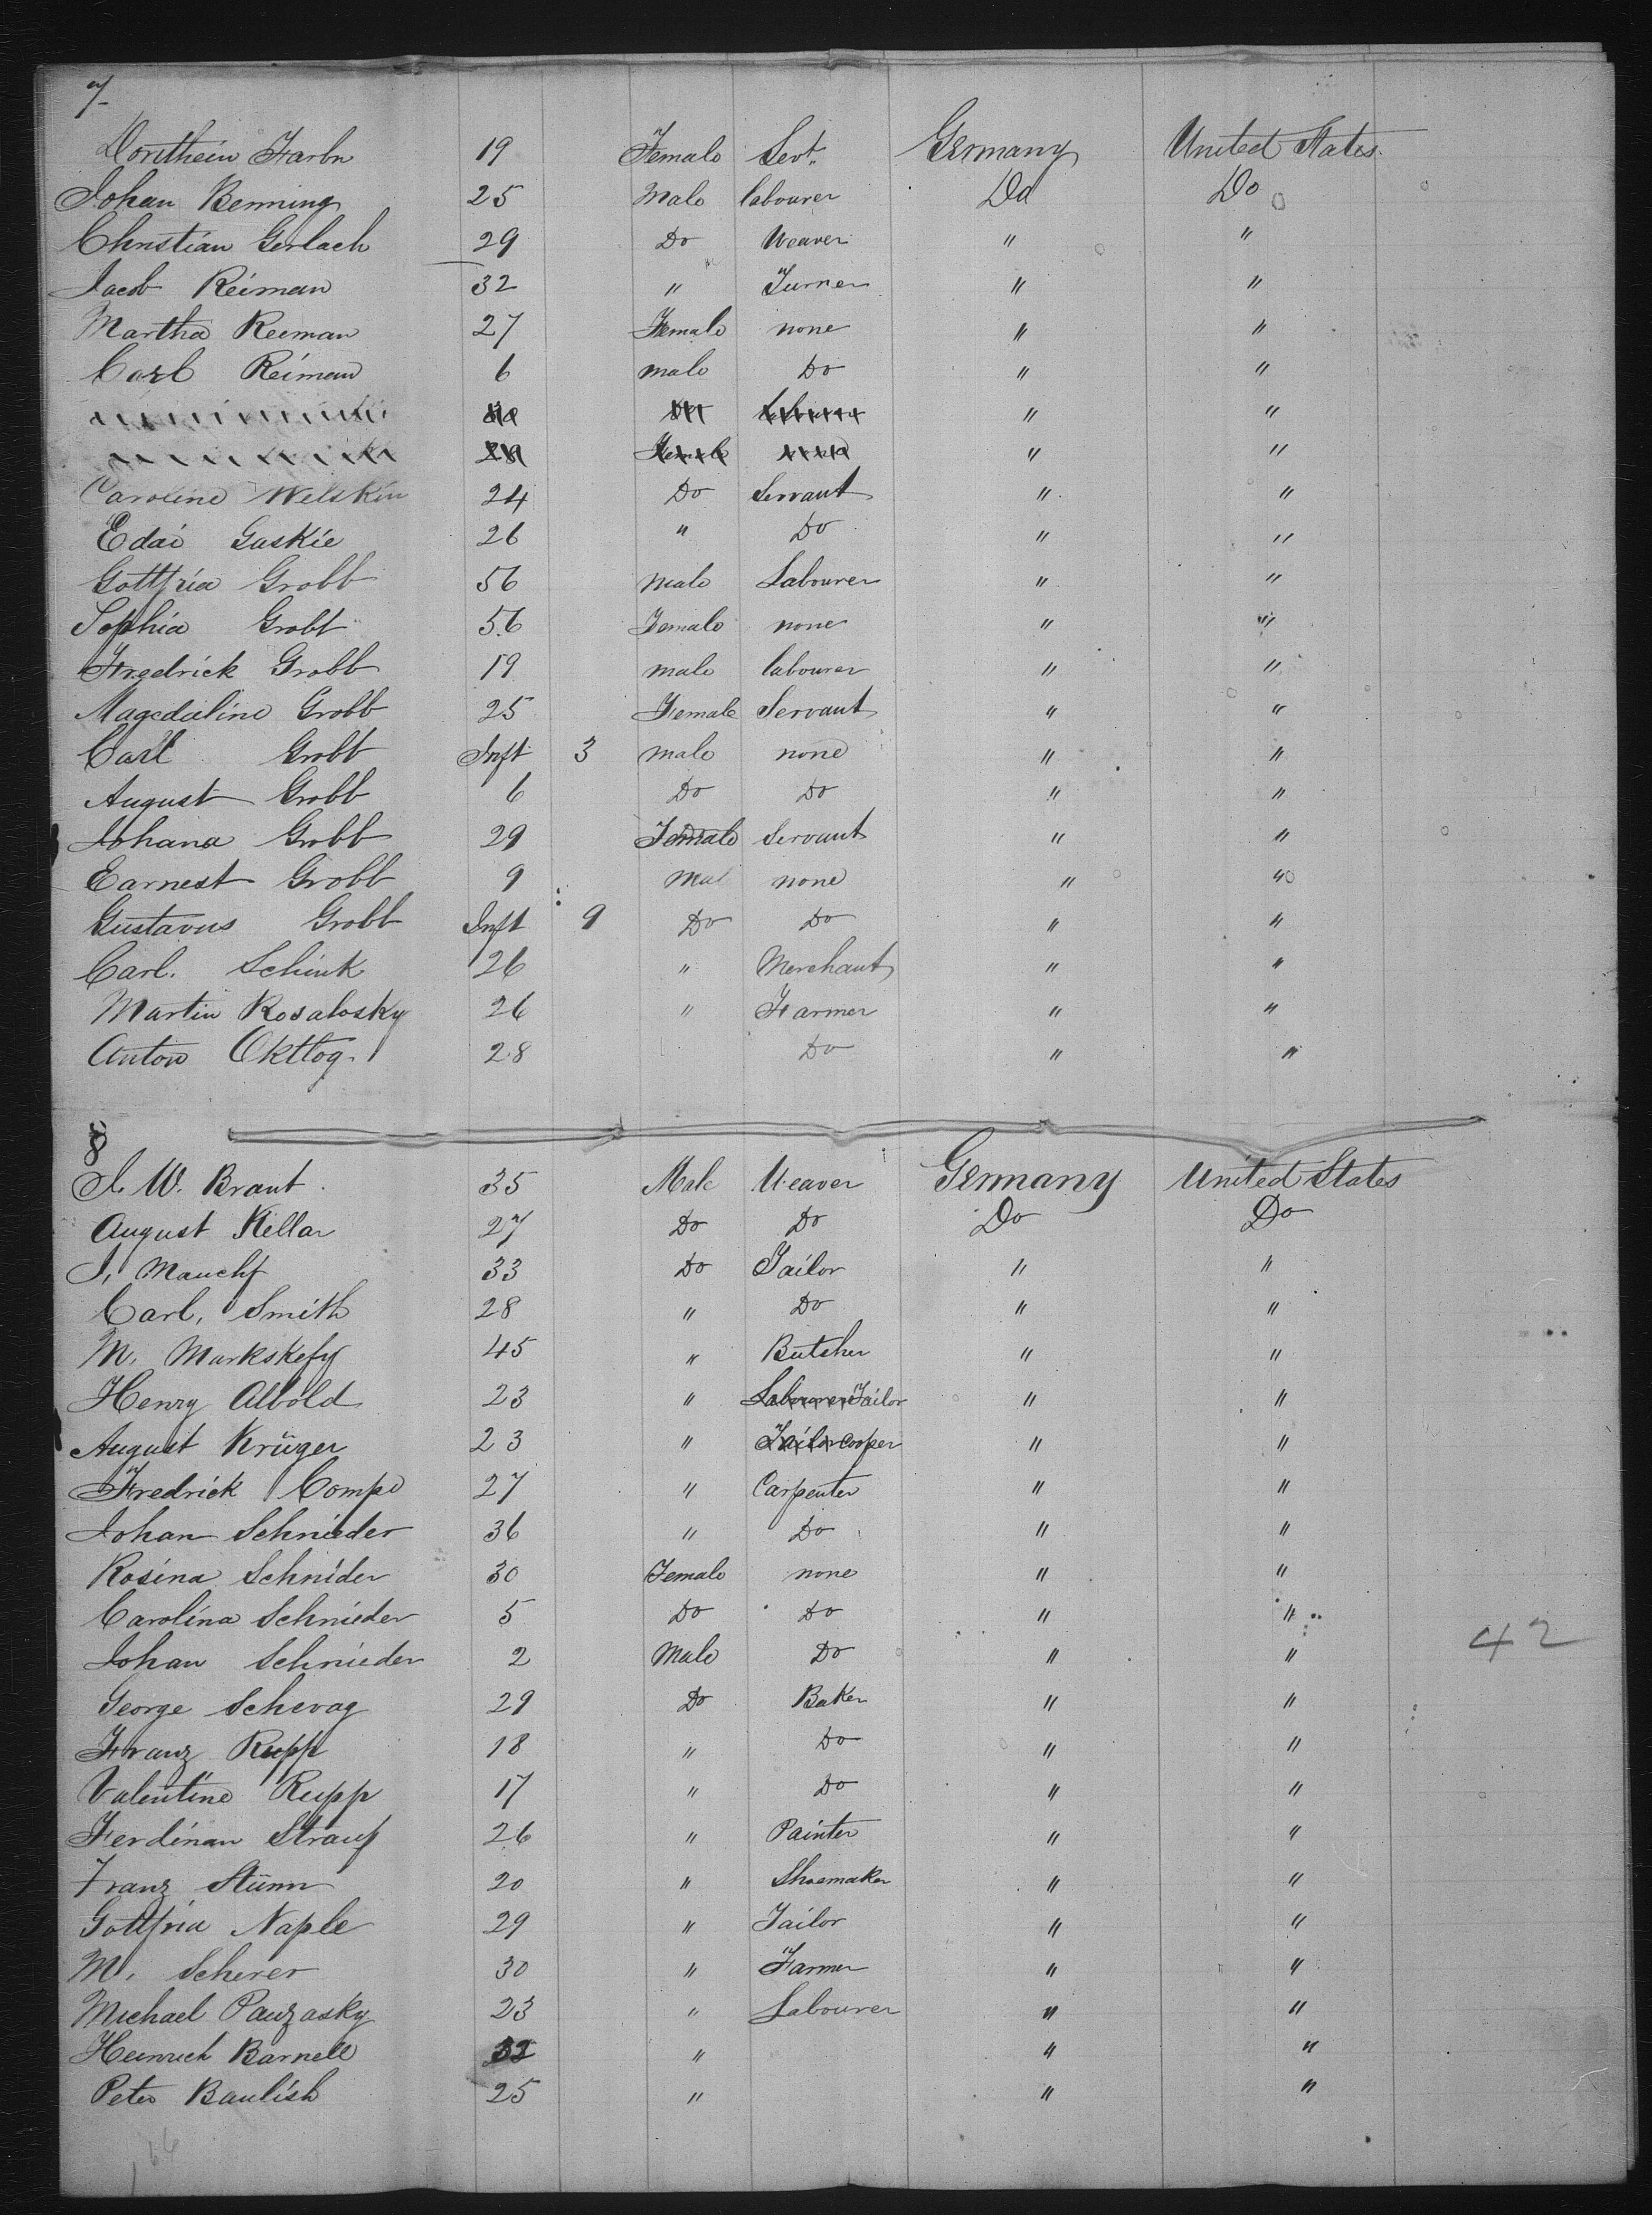 7
Dorithein Farbn 19 Female Servt. Germany United States
Johan Benning 25 Male labourer Do Do
Christian Gerlach 29 Do Weaver " "
Jacob Reiman 32 " Turner " "
Martha Reiman 27 Female none " "
Carl Reiman 6 male Do " "
" "
28 Female " "
Caroline Welskin 24 Do Servant " "
Edai Guskie 26 " Do " "
Gottfria Grobb 56 male Labourer " "
Sophia Grobb 56 Female none " "
Fredrick Grobb 19 male labourer " "
Magedaline Grobb 25 Female Servant " "
Carl Grobb Inft 3 male none " "
August Grobb 6 Do Do " "
Johana Grobb 29 Female Servant " "
Earnest Grobb 9 Mal none " "
Gustavus Grobb Inft 9 Do Do " "
Carl. Schink 26 " Merchant " "
Martin Rosalosky 26 " Farmer " "
Anton Oktlog 28 Do " "
8
J. W. Brant 35 Male Weaver Germany United States
August Kellar 27 Do Do Do Do
J, Mauchf 33 Do Tailor " "
Carl, Smith 28 " Do " "
M, Markskefy 45 " Butcher " "
Henry Albold 23 " Labourer Tailor " "
August Krüger 23 " Tailor Cooper " "
Fredrick Compe 27 " Carpenter " "
Johan Schnieder 36 " Do " "
Rosina Schnider 30 Female none " "
Carolina Schnieder 5 Do Do " "
Johan Schnieder 2 Male Do " "
42
George Schevag 29 Do Baker " "
Franz Rupp 18 " Do " "
Valentine Rupp 17 " Do " "
Ferdinan Strauf 26 " Painter " "
Franz Stümn 20 " Shoemaker " "
Gottfria Naple 29 " Tailor " "
M, Scherer 30 " Farmer " "
Michael Pauzasky 23 " Labourer " "
Heinrich Barnell 32 " " "
Peter Baulish 25 " " "